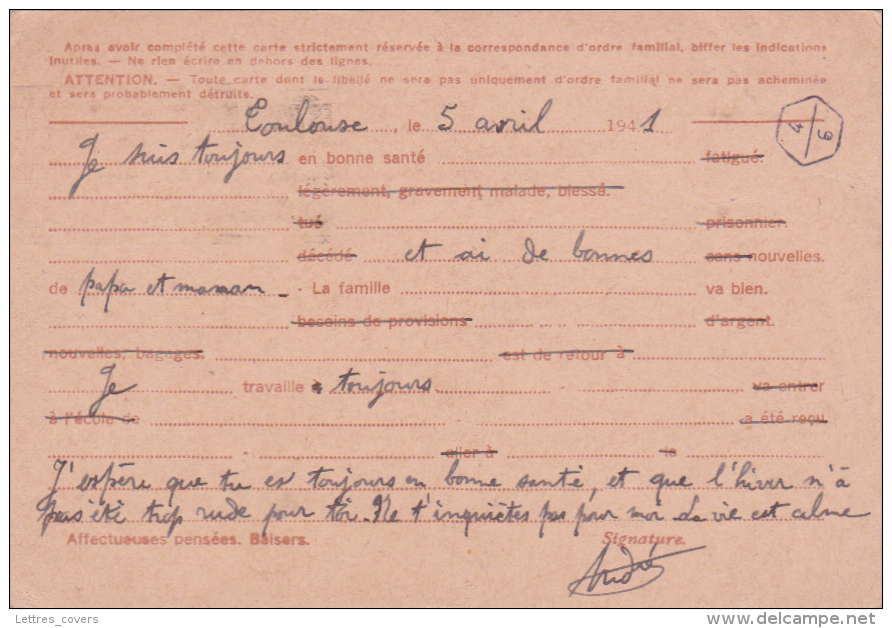 Après avoir complété cette carte strictement réservée à la correspondance d'ordre familial, biffer les indications
inutiles. — Ne rien écrire en dehors des lignes.
ATTENTION. — Toute carte dont le libellé ne sera pas uniquement d'ordre familial ne sera pas acheminée
et sera probablement détruite.
Toulouse, le 5 avril 1941
4/9
Je suis toujours en bonne santé fatigué.
légèrement, gravement malade, blessé.
tué prisonnier.
décédé et ai de bonnes sans nouvelles.
de papa et maman - La famille va bien.
besoins de provisions d'argent.
nouvelles, bagages. est de retour à
Je travaille à toujours va entrer
à l'école de a été reçu
aller à le
J'espère que tu es toujours en bonne santé, et que l'hiver n'à
pas été trop rude pour toi. Ne t'inquiètes pas pour moi. La vie est calme
Affectueuses pensées. Baisers. Signature.
André
Lettres_covers
delcampe.net